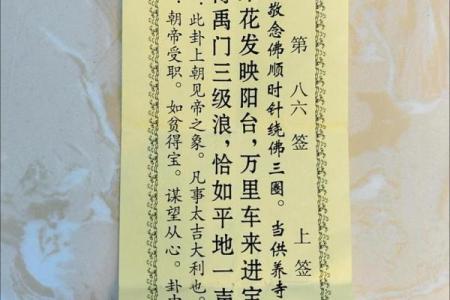 第八六签 上签
敬念佛顺时针绕佛三圈。当供养寺
花发映阳台，万里车来进宝
得禹门三级浪，恰如平地一声
：此卦上朝见帝之象。凡事太吉大利也。
：朝帝受职。如贫得宝。谋望从心。卦中